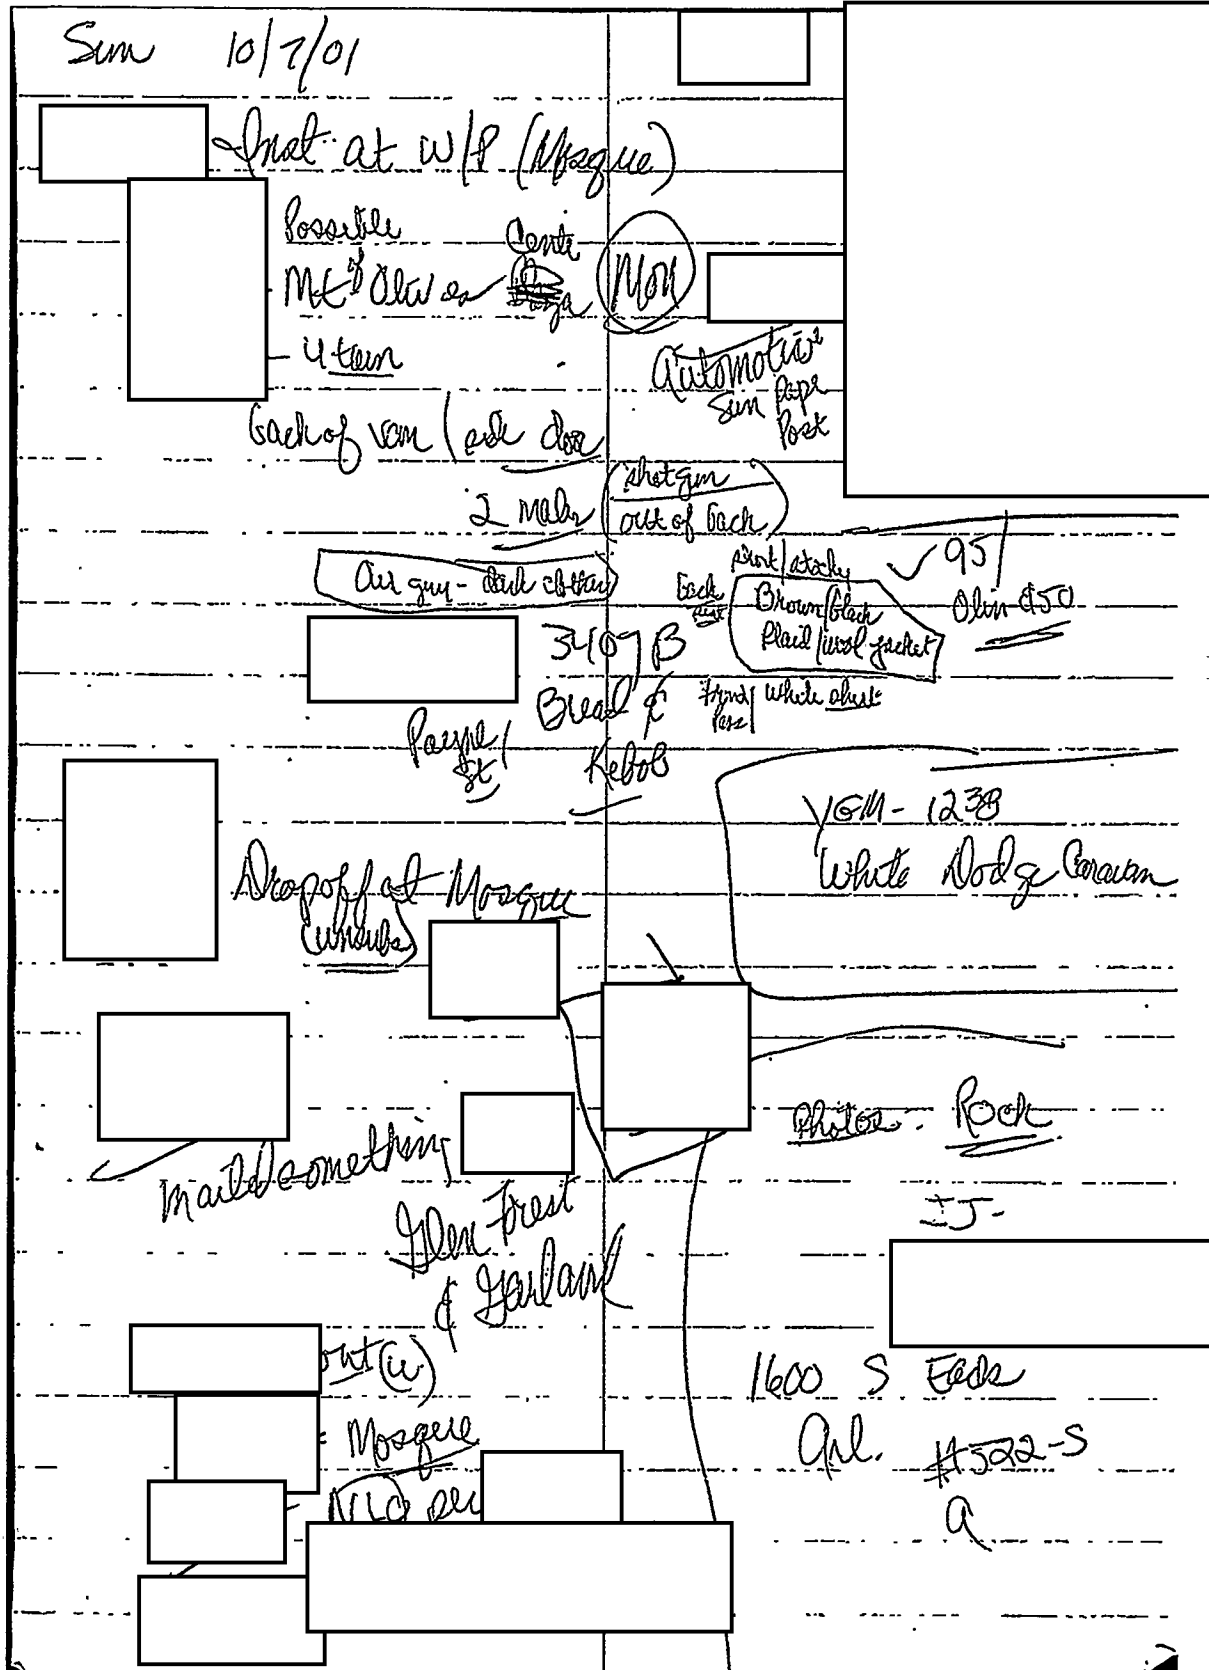 Sun 10/7/01
Inst. at W/P (Mosque)
Possible
Mt of Olives
Cente
Mon
U turn
Automotive
Sun pape
Post
back of van / side door
2 males
(shotgun
out of back)
guy - dark clothes
short/stocky
✓ 95/
Olin 850
back
Brown/black
Plaid/wool jacket
3407 B
Bread &
Kebob
Front
Pass/
White shirt
Payne
St/
YGM-1238
White Dodge Caravan
Dropoff at Mosque
(unsubs)
Photos:
Rock
maild something
Glen Forest
& Garland
IJ-
out (w)
1600 S Eads
Mosque
Arl. #522-S
a